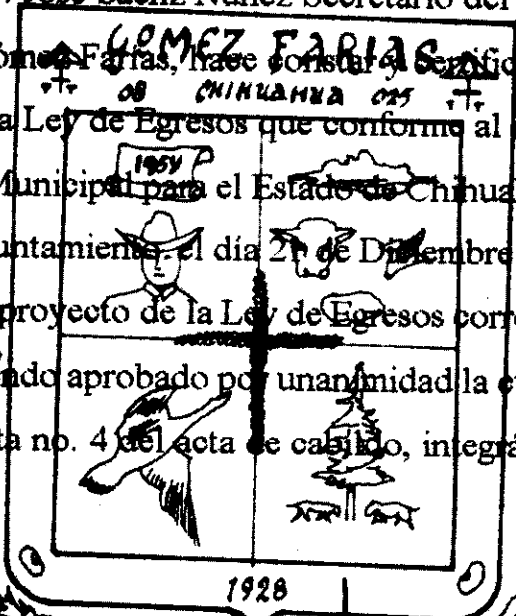 José Sáenz Núñez Secretario del
GOMEZ FARIAS
Gómez Farías, hace constar y
08 CHIHUAHUA 025
a Ley de Egresos que conforme al
1954
Municipal para el Estado de Chihua
untamiento el día 21 de Diciembre
proyecto de la Ley de Egresos corre
ndo aprobado por unanimidad la
ta no. 4 del acta de cabildo, integrá
1928